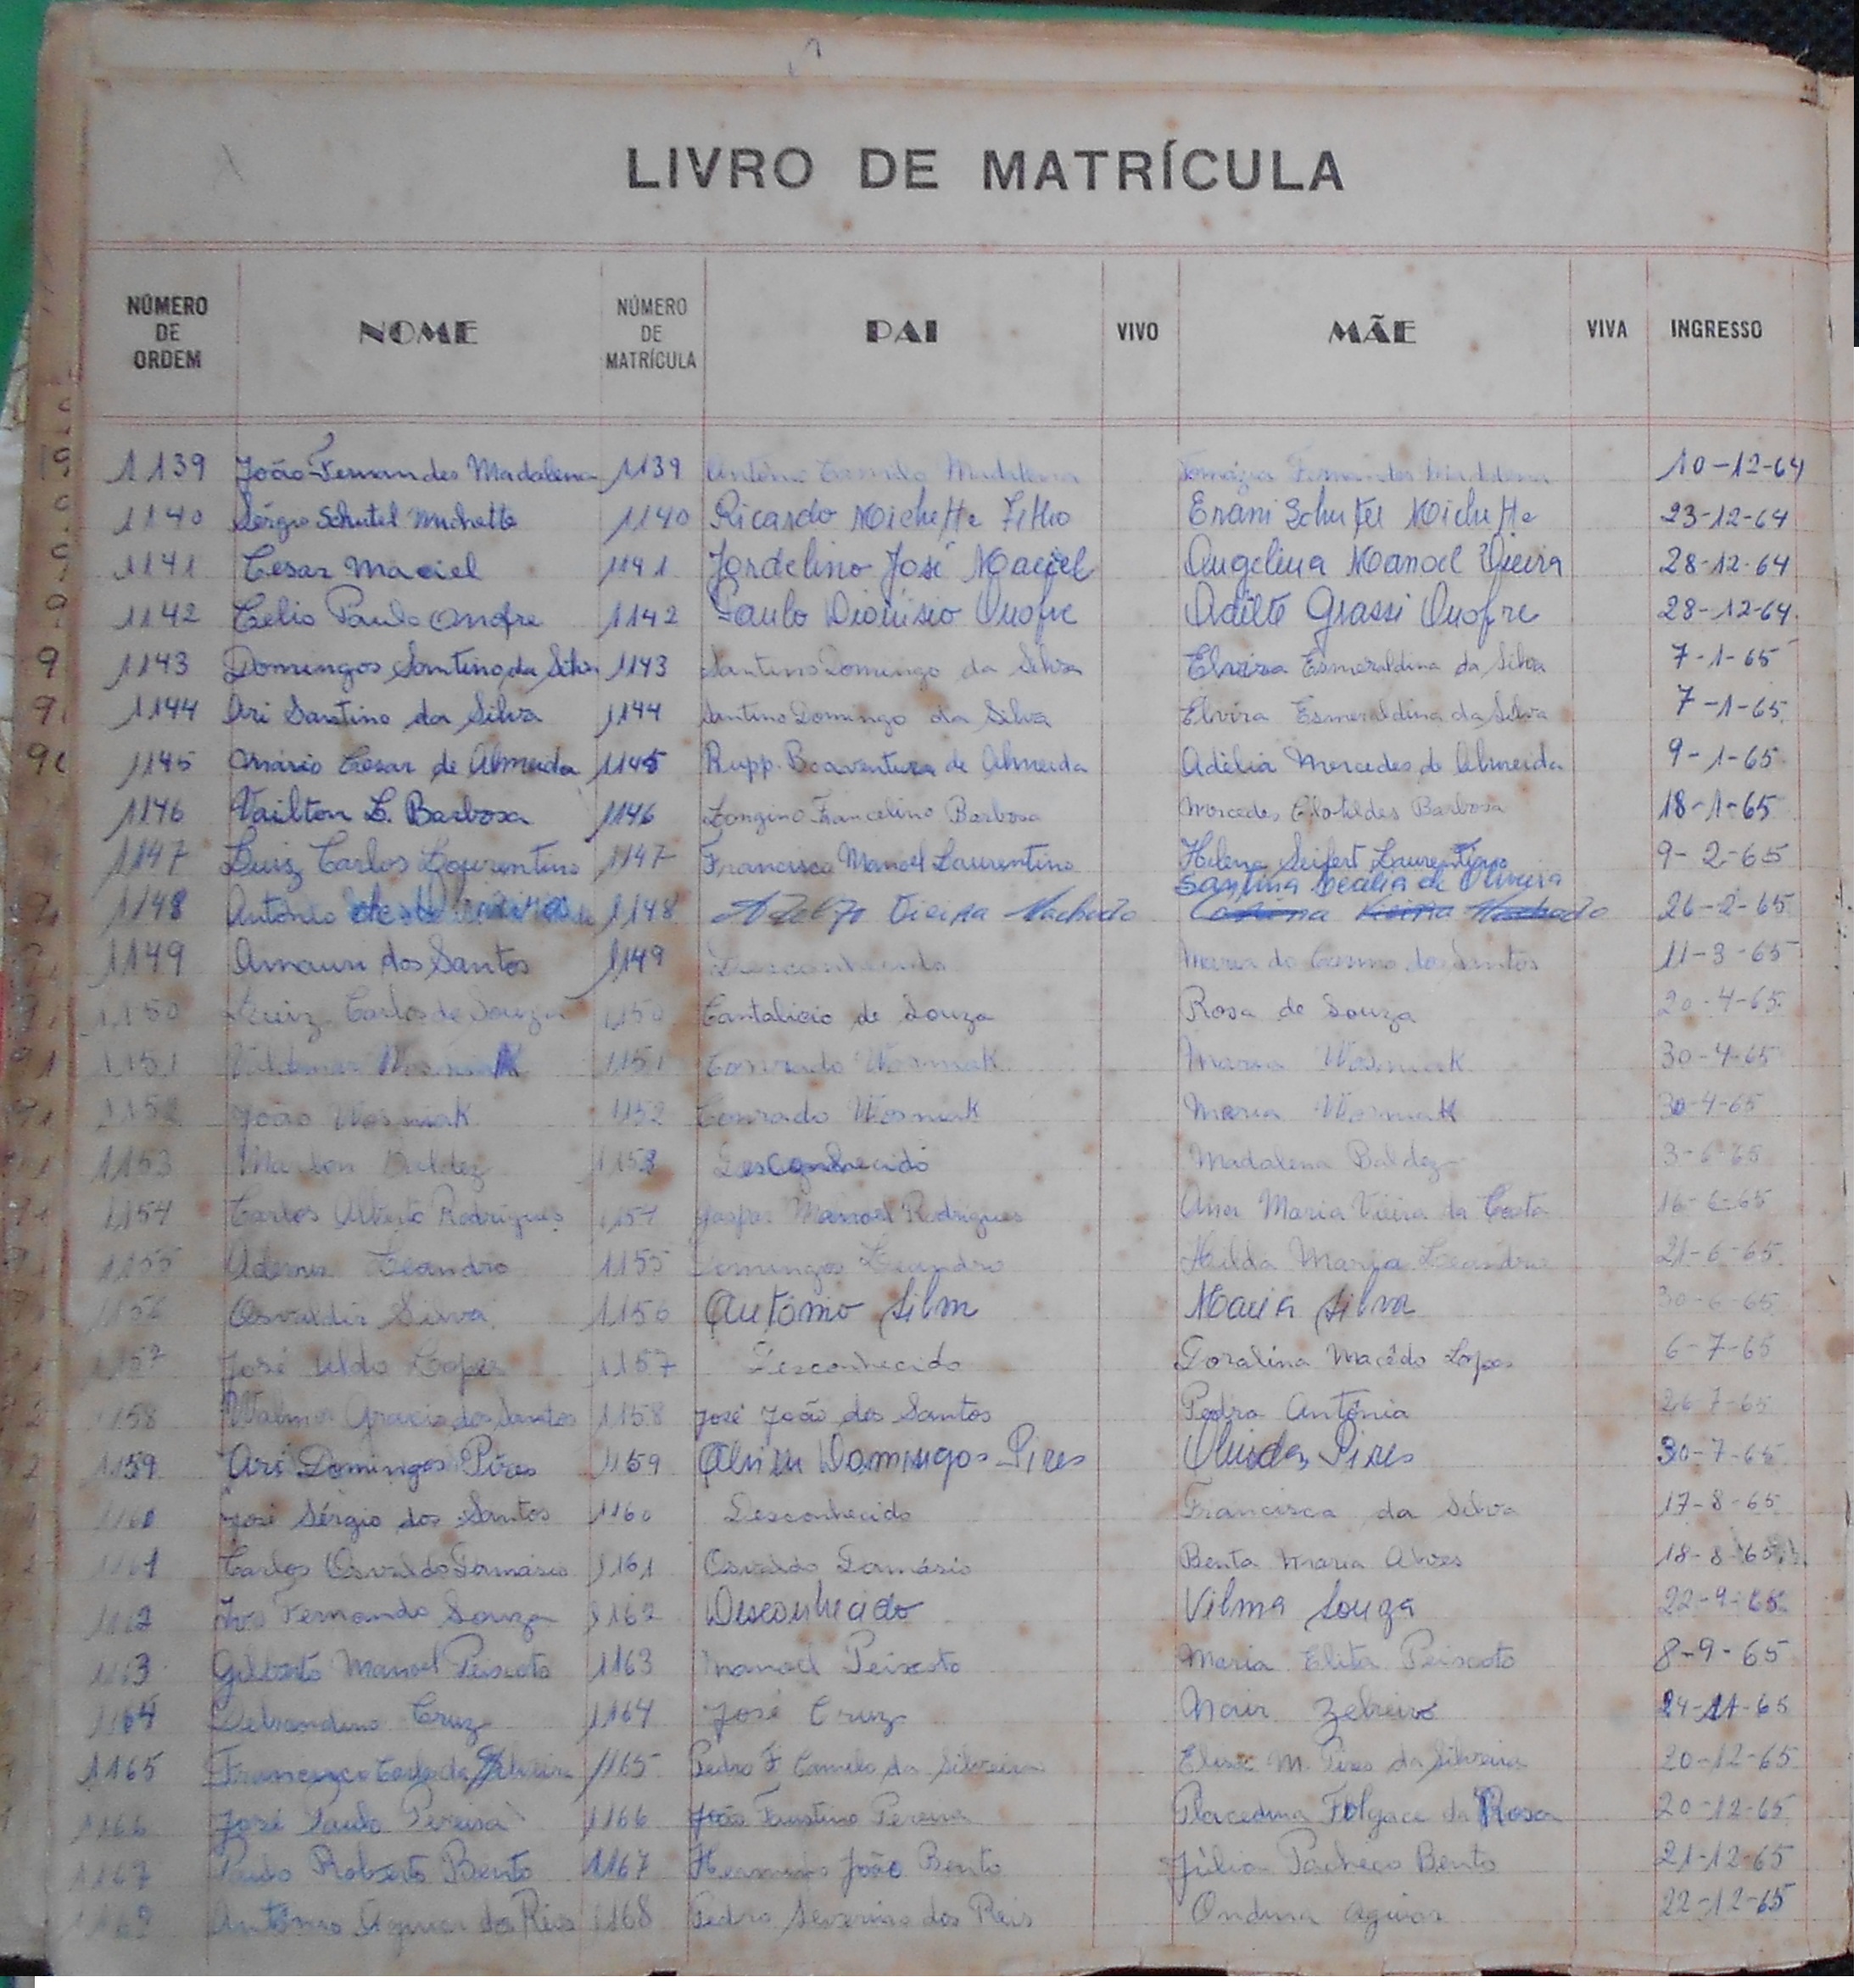 LIVRO DE MATRÍCULA
NÚMERO DE ORDEM NOME NÚMERO DE MATRÍCULA PAI VIVO MÃE VIVA INGRESSO
1139 João Fernandes Madalena 1139 Antônio Camilo Madalena Fernandes Madalena 10-12-64
1140 Sérgio Schutel Michette 1140 Ricardo Michette Filho Erani Schutel Michette 23-12-64
1141 Cesar Maciel 1141 Jordelino José Maciel Angelina Manoel Vieira 28-12-64
1142 Celio Paulo Onofre 1142 Paulo Dionísio Onofre Odilte Grassi Onofre 28-12-64
1143 Domingos Santino da Silva 1143 Santino Domingo da Silva Elvira Esmeraldina da Silva 7-1-65
1144 Ari Santino da Silva 1144 Santino Domingo da Silva Elvira Esmeraldina da Silva 7-1-65
1145 Mário Cesar de Almeida 1145 Rupp. Boaventura de Almeida Adélia Mercedes de Almeida 9-1-65
1146 Vailton L. Barbosa 1146 Longino Francelino Barbosa Mercedes Clotildes Barbosa 18-1-65
1147 Luiz Carlos Laurentino 1147 Francisco Manoel Laurentino Helena Seifert Laurentino 9-2-65
Santina Cecília de Oliveira
1148 Antônio 1148 Adelfo Vieira Machado Vieira Machado 26-2-65
1149 Amauri dos Santos 1149 Desconhecido Maria do Carmo dos Santos 11-3-65
1150 Luiz Carlos de Souza 1150 Cantalicio de Souza Rosa de Souza 20-4-65
1151 Valdemar Wosniak 1151 Conrado Wosniak Maria Wosniak 30-4-65
1152 João Wosniak 1152 Conrado Wosniak Maria Wosniak 30-4-65
1153 Marlon Baldez 1153 Desconhecido Madalena Baldez 3-6-65
1154 Carlos Alberto Rodrigues 1154 Gaspar Manoel Rodrigues Ana Maria Vieira da Costa 16-6-65
1155 Ademir Leandro 1155 Domingos Leandro Hilda Maria Leandro 21-6-65
1156 Osvaldir Silva 1156 Antônio Silva Maria Silva 30-6-65
1157 José Ildo Lopes 1157 Desconhecido Doralina Macêdo Lopes 6-7-65
1158 Walmor Gracio dos Santos 1158 José João dos Santos Pedra Antônia 26-7-65
1159 Ari Domingos Pires 1159 Alvim Domingos Pires Olindes Pires 30-7-65
1160 José Sérgio dos Santos 1160 Desconhecido Francisca da Silva 17-8-65
1161 Carlos Osvaldo Damásio 1161 Osvaldo Damásio Benta Maria Alves 18-8-65
1162 Ivo Fernando Souza 1162 Desconhecido Vilma Souza 22-9-65
1163 Gilberto Manoel Peixoto 1163 Manoel Peixoto Maria Elita Peixoto 8-9-65
1164 Cruz 1164 José Cruz Nair 24-11-65
1165 Francisco Carlos da Silveira 1165 Pedro F Camilo da Silveira M. Pires da Silveira 20-12-65
1166 José Paulo Pereira 1166 João Faustino Pereira Placedina Folgace da Rosa 20-12-65
1167 Paulo Roberto Bento 1167 João Bento Júlia Pacheco Bento 21-12-65
1168 Antônio Aguiar dos Reis 1168 Pedro Severino dos Reis Ondina Aguiar 22-12-65